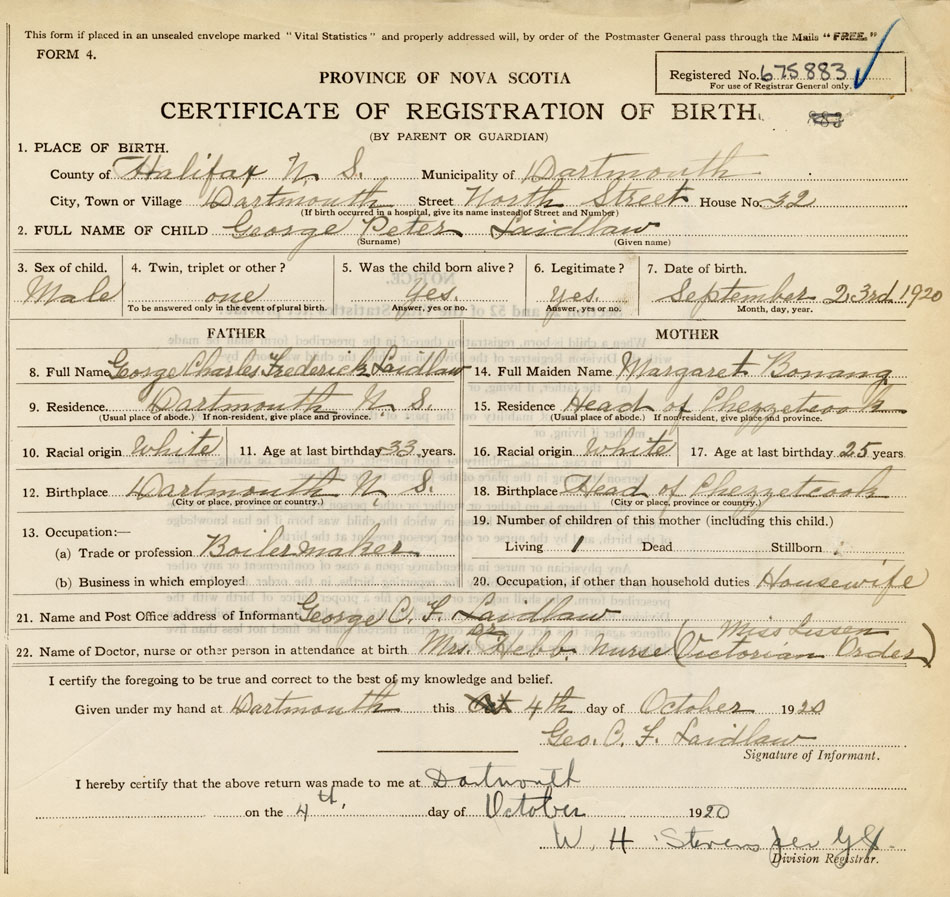 This form if placed in an unsealed envelope marked "Vital Statistics" and properly addressed will, by order of the Postmaster General pass through the Mails "FREE."
FORM 4.
Registered No. 675883
For use of Registrar General only.
PROVINCE OF NOVA SCOTIA
CERTIFICATE OF REGISTRATION OF BIRTH.
(BY PARENT OR GUARDIAN)
1. PLACE OF BIRTH.
County of Halifax N. S. Municipality of Dartmouth
City, Town or Village Dartmouth Street North Street House No. 32
(If birth occurred in a hospital, give its name instead of Street and Number)
2. FULL NAME OF CHILD George Peter Laidlaw
(Surname) (Given name)
3. Sex of child. 4. Twin, triplet or other? 5. Was the child born alive? 6. Legitimate? 7. Date of birth.
Male one Yes. Yes. September 23rd 1920
To be answered only in the event of plural birth. Answer, yes or no. Answer, yes or no. Month, day, year.
FATHER MOTHER
8. Full Name George Charles Frederick Laidlaw 14. Full Maiden Name Margaret Bonang
9. Residence. Dartmouth N. S. 15. Residence Head of Chezzetcook
(Usual place of abode.) If non-resident, give place and province. (Usual place of abode.) If non-resident, give place and province.
10. Racial origin White 11. Age at last birthday 33 years. 16. Racial origin White 17. Age at last birthday 25 years
12. Birthplace Dartmouth N. S. 18. Birthplace Head of Chezzetcook
(City or place, province or country.) (City or place, province or country.)
13. Occupation:— 19. Number of children of this mother (including this child.)
(a) Trade or profession Boilermaker Living 1 Dead Stillborn
(b) Business in which employed 20. Occupation, if other than household duties Housewife
21. Name and Post Office address of Informant George C. F. Laidlaw
22. Name of Doctor, nurse or other person in attendance at birth Mrs. Hebb. Nurse (Miss Lissen Victorian Order)
I certify the foregoing to be true and correct to the best of my knowledge and belief.
Given under my hand at Dartmouth this 4th day of October 1920
Geo. C. F. Laidlaw
Signature of Informant.
I hereby certify that the above return was made to me at Dartmouth
on the 4th, day of October 1920
W. H. Stevens per
Division Registrar.